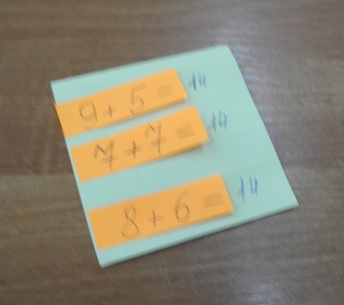 9+5=14
7+7=14
8+6=14